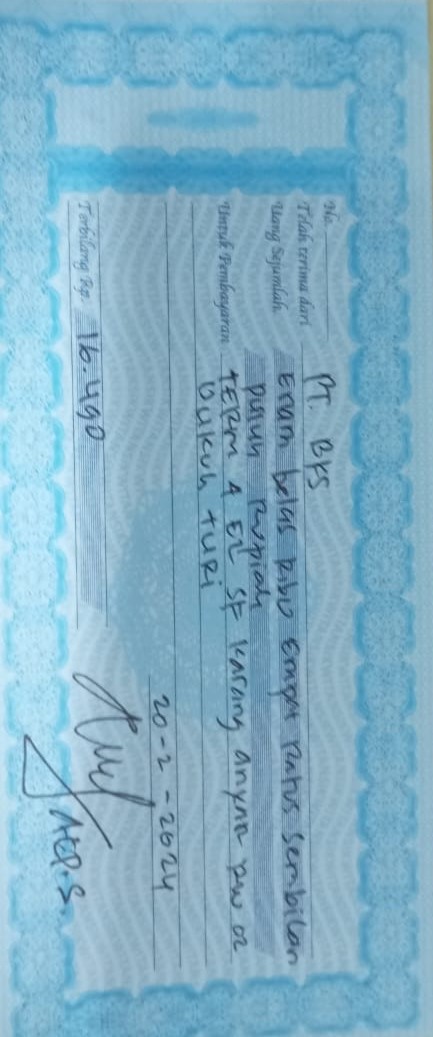 No.
Telah terima dari PT. BKS
Uang Sejumlah Enam belas Ribu Empat Ratus Sembilan
puluh Rupiah
Untuk Pembayaran TERM 4 EZ SF Karang anyar RW 02
Dukuh TURi
20-2-2024
Terbilang Rp. 16.490
AEP.S.